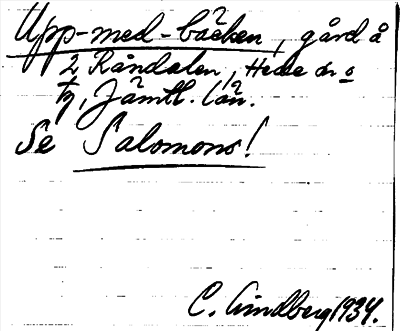 Upp-med-bäcken, gård å
Råndalen, Hede s:n o
hd, Jämtl. län.
Se Salomons!
C. Lindberg 1934.